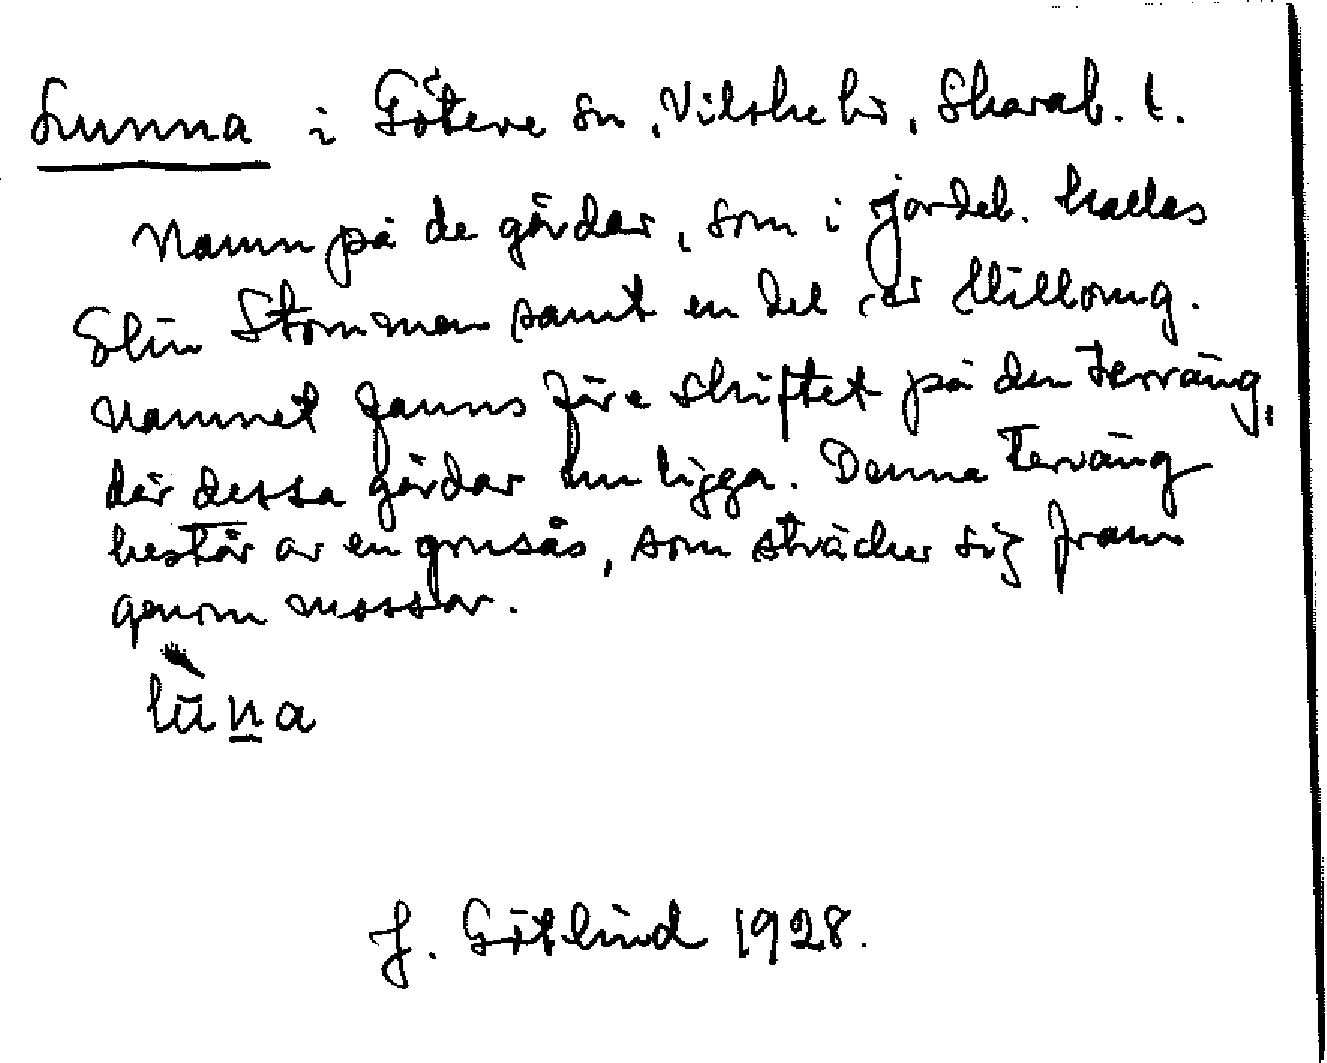 Lunna i Göteve sn, Vilske hd, Skarab. l.
Namn på de gårdar, som i jordeb. kallas
Stommen samt en del av Millomg.
Namnet fanns före skiftet på den terräng,
där dessa gårdar nu ligga. Denna terräng
består av en grusås, som sträcker sig fram
genom mossar.
lūn̲a
J. Götlind 1928.